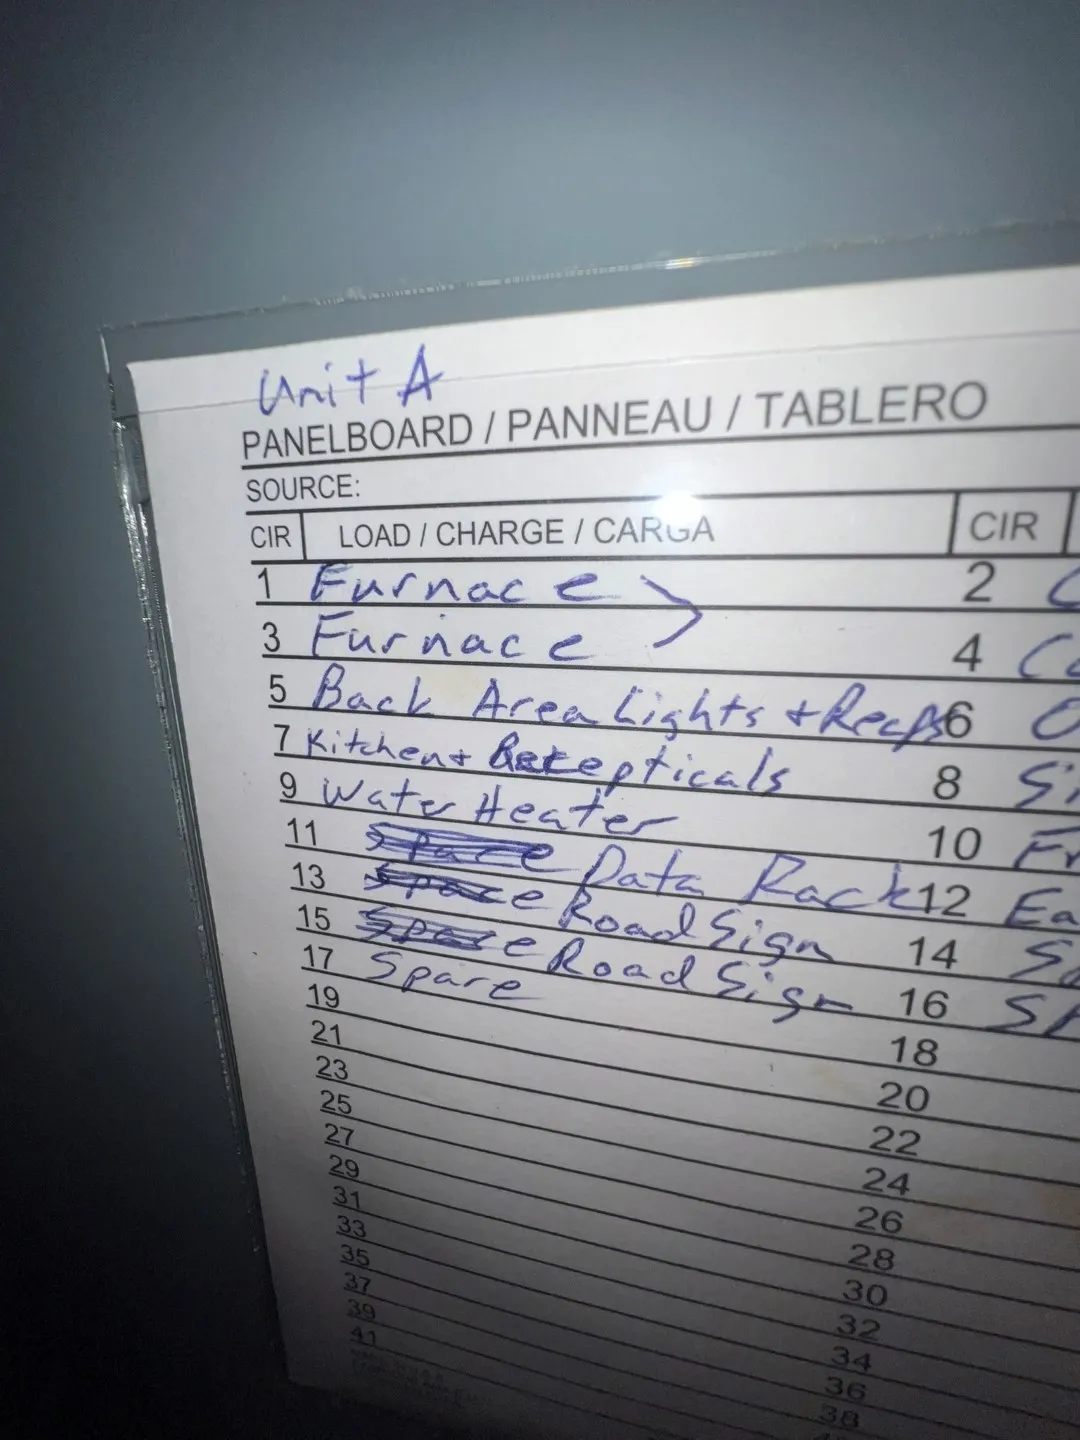 Unit A
PANELBOARD / PANNEAU / TABLERO
SOURCE:
CIR LOAD / CHARGE / CARGA CIR
1 Furnace 2
3 Furnace 4
5 Back Area Lights + Recps 6
7 Kitchen + Recepticals 8
9 Water Heater 10
11 Space Data Rack 12
13 Space Road Sign 14
15 Space Road Sign 16
17 Spare 18
19 20
21 22
23 24
25 26
27 28
29 30
31 32
33 34
35 36
37 38
39
41